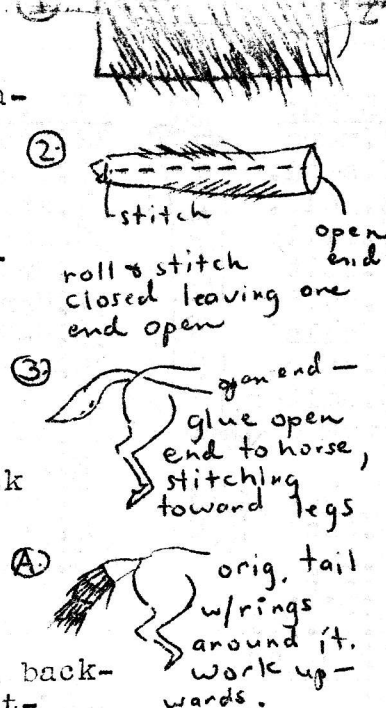 a-
2.
stitch
open
end
roll & stitch
closed leaving one
end open
3.
open end —
glue open
end to horse,
stitching
toward legs
k
A.
orig. tail
w/rings
around it.
work up-
wards.
back-
t-